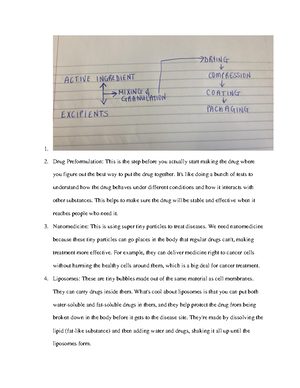 DRYING
ACTIVE INGREDIENT
COMPRESSION
MIXING &
GRANULATION
COATING
EXCIPIENTS
PACKAGING
1.
2. Drug Preformulation: This is the step before you actually start making the drug where
you figure out the best way to put the drug together. It's like doing a bunch of tests to
understand how the drug behaves under different conditions and how it interacts with
other substances. This helps to make sure the drug will be stable and effective when it
reaches people who need it.
3. Nanomedicine: This is using super tiny particles to treat diseases. We need nanomedicine
because these tiny particles can go places in the body that regular drugs can't, making
treatment more effective. For example, they can deliver medicine right to cancer cells
without harming the healthy cells around them, which is a big deal for cancer treatment.
4. Liposomes: These are tiny bubbles made out of the same material as cell membranes.
They can carry drugs inside them. What's cool about liposomes is that you can put both
water-soluble and fat-soluble drugs in them, and they help protect the drug from being
broken down in the body before it gets to the disease site. They're made by dissolving the
lipid (fat-like substance) and then adding water and drugs, shaking it all up until the
liposomes form.